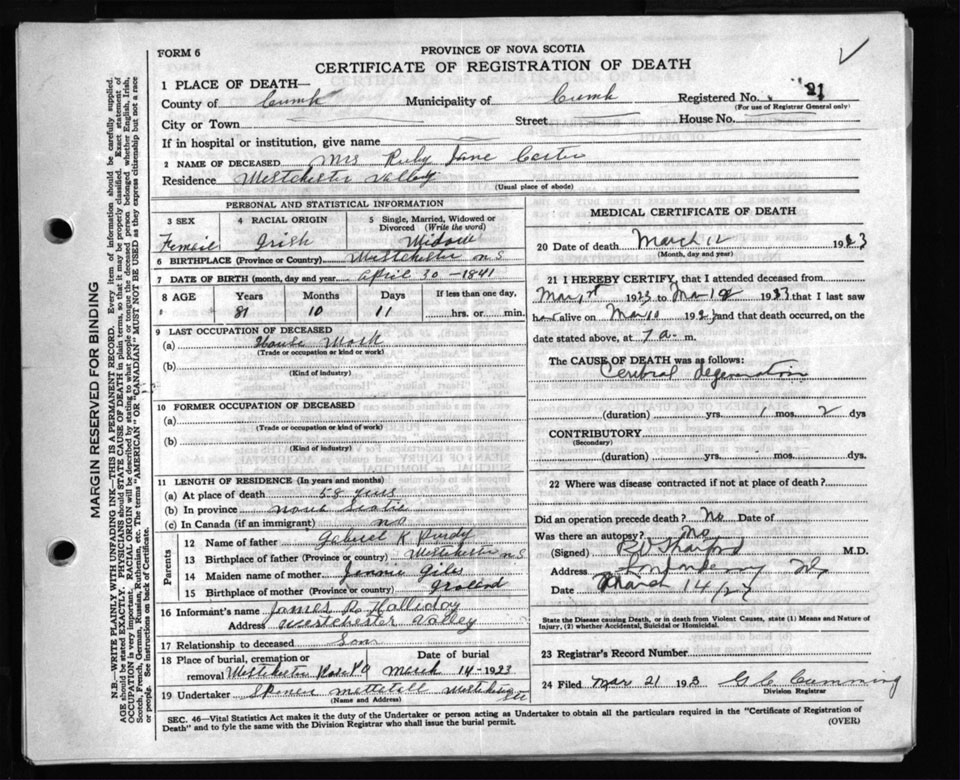 FORM 6
PROVINCE OF NOVA SCOTIA
CERTIFICATE OF REGISTRATION OF DEATH
1 PLACE OF DEATH—
County of Cumb Municipality of Cumb Registered No. 21
(For use of Registrar General only)
City or Town Street House No.
If in hospital or institution, give name
2 NAME OF DECEASED Mrs Ruby Jane
Residence Westchester Valley
(Usual place of abode)
PERSONAL AND STATISTICAL INFORMATION
3 SEX 4 RACIAL ORIGIN 5 Single, Married, Widowed or
Divorced (Write the word)
Female Irish Widow
6 BIRTHPLACE (Province or Country) Westchester N S
7 DATE OF BIRTH (month, day and year April 30 - 1841
8 AGE Years Months Days If less than one day,
81 10 11 hrs. or min.
9 LAST OCCUPATION OF DECEASED
(a) House Work
(Trade or occupation or kind or work)
(b)
(Kind of industry)
10 FORMER OCCUPATION OF DECEASED
(a)
(Trade or occupation or kind of work)
(b)
(Kind of industry)
11 LENGTH OF RESIDENCE (In years and months)
(a) At place of death 58 years
(b) In province Nova Scotia
(c) In Canada (if an immigrant) no
Parents
12 Name of father Gabriel K Purdy
13 Birthplace of father (Province or country) Westchester N S
14 Maiden name of mother Jennie Giles
15 Birthplace of mother (Province or country)
16 Informant's name James R Halliday
Address Westchester Valley
17 Relationship to deceased Son
18 Place of burial, cremation or Date of burial
removal Westchester March 14 - 1923
19 Undertaker
(Name and Address)
MEDICAL CERTIFICATE OF DEATH
20 Date of death March 12 1923
(Month, day and year)
21 I HEREBY CERTIFY, that I attended deceased from
Mar 1st 1923 to Mar 12 1923 that I last saw
her alive on Mar 10 1923 and that death occurred, on the
date stated above, at 7 a. m.
The CAUSE OF DEATH was as follows:
Cerebral Degeneration
(duration) yrs. 1 mos. 2 dys
CONTRIBUTORY
(Secondary)
(duration) yrs. mos. dys.
22 Where was disease contracted if not at place of death?
Did an operation precede death? No Date of
Was there an autopsy? No
(Signed) M.D.
Address Londonderry
Date March 14/23
State the Disease causing Death, or in death from Violent Causes, state (1) Means and Nature of
Injury, (2) whether Accidental, Suicidal or Homicidal.
23 Registrar's Record Number
24 Filed Mar 21 1923 G. C. Cumming
Division Registrar
SEC. 46—Vital Statistics Act makes it the duty of the Undertaker or person acting as Undertaker to obtain all the particulars required in the "Certificate of Registration of
Death" and to fyle the same with the Division Registrar who shall issue the burial permit.
(OVER)
MARGIN RESERVED FOR BINDING
N.B.—WRITE PLAINLY WITH UNFADING INK—THIS IS A PERMANENT RECORD. Every item of information should be carefully supplied.
AGE should be stated EXACTLY. PHYSICIANS should STATE CAUSE OF DEATH in plain terms, so that it may be properly classified. Exact statement of
OCCUPATION is very important. RACIAL ORIGIN will be described by stating to what people or tongue the deceased person belonged whether English, Irish,
Scotch, French, German, Russian, Ruthenian, etc. The terms "AMERICAN" OR "CANADIAN" MUST NOT BE USED as they express citizenship but not a race
or people. See instructions on back of Certificate.